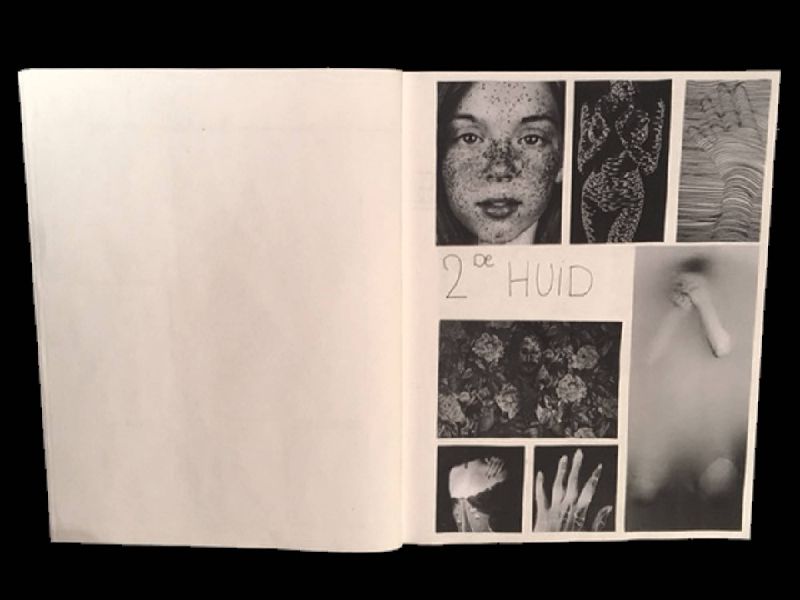 2de HUiD